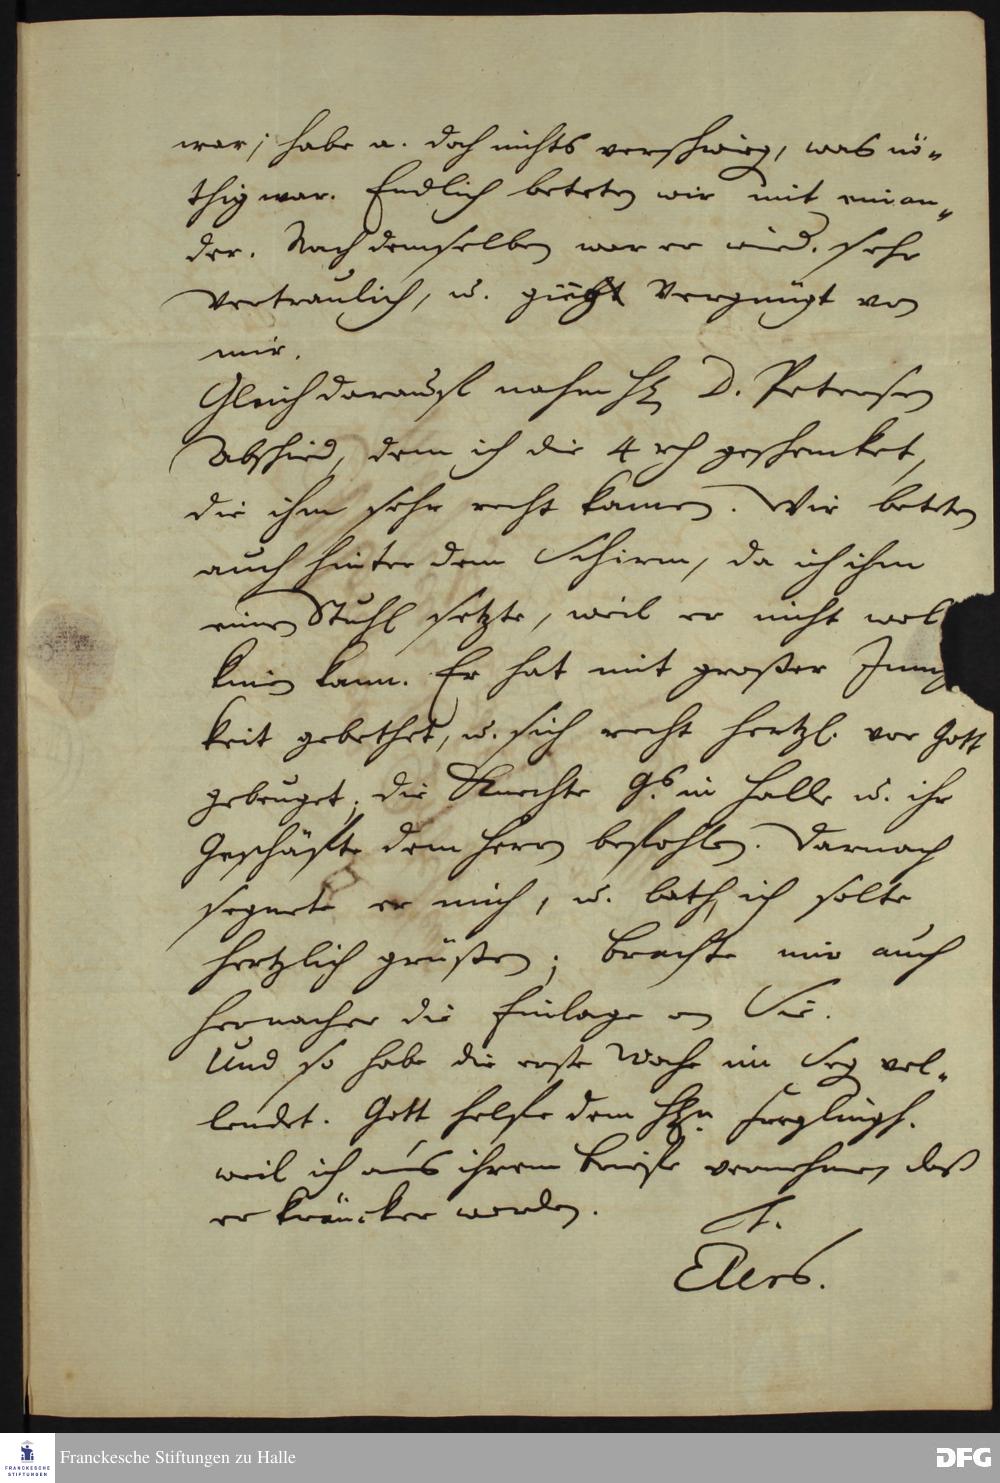 war; habe a. doch nichts verschwieg, was nö-
thig war. Endlich beteten wir mit einan-
der. Nach demselben war er wied. sehr
vertraulich, u. gieng vergnügt von
mir.
Gleich darauf nahm H. D. Petersen
Abschied, dem ich die 4 rth geschencket,
die ihm sehr recht kamen. Wir beteten
auch hinter dem Schirm, da ich ihm
einen Stuhl setzte, weil er nicht wol
knien kann. Er hat mit großer Innig
keit gebethet, u. sich recht hertzl. vor Gott
gebeuget, die Knechte Gs. in Halle u. ihr
Geschäffte dem Herrn befohlen. Darnach
segnete er mich, u. bath, ich solte
hertzlich grüßen; brachte mir auch
hernacher die Einlage an Sie.
Und so habe die erste Woche im Seg vol-
lendet. Gott helffe dem H. Freylingh.
weil ich aus ihrem Brieffe vernehme, daß
er kräncker worden.
Elers.
Franckesche Stiftungen zu Halle
DFG
FRANCKESCHE
STIFTUNGEN